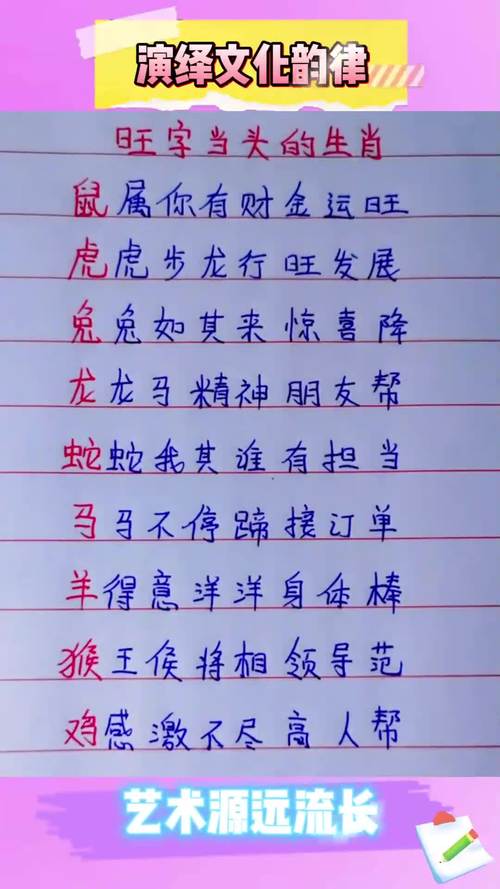 演绎文化韵律
旺字当头的生肖
鼠属你有财金运旺
虎虎步龙行旺发展
兔兔如其来惊喜降
龙龙马精神朋友帮
蛇蛇我其谁有担当
马马不停蹄接订单
羊得意洋洋身体棒
猴王侯将相领导范
鸡感激不尽高人帮
艺术源远流长